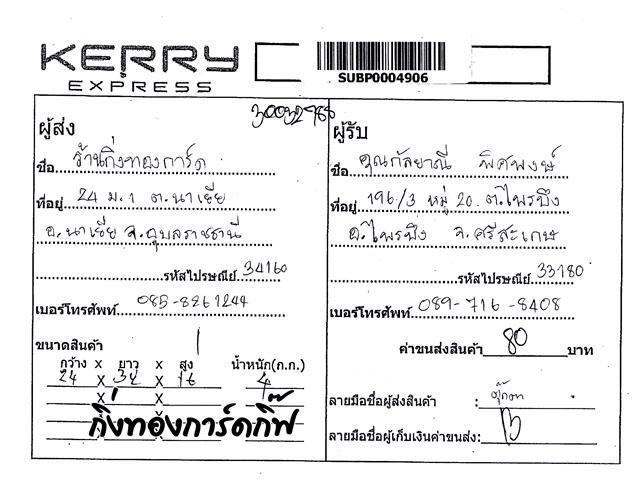 KERRY
EXPRESS
SUBP0004906
30032988
ผู้ส่ง
ชื่อ ร้านกิ่งทองการ์ด
ที่อยู่ 24 ม.1 ต.นาเยีย
อ.นาเยีย จ.อุบลราชธานี
รหัสไปรษณีย์ 34160
เบอร์โทรศัพท์ 085-8261244
ขนาดสินค้า 1
กว้าง x ยาว x สูง น้ำหนัก(ก.ก.)
24 x 32 x 16 4
x x
กิ่งทองการ์ดกิ๊ฟ
ผู้รับ
ชื่อ คุณกัลยาณี พิศพงษ์
ที่อยู่ 196/3 หมู่ 20 ต.ไพรบึง
อ.ไพรบึง จ.ศรีสะเกษ
รหัสไปรษณีย์ 33180
เบอร์โทรศัพท์ 089-716-8408
ค่าขนส่งสินค้า 80 บาท
ลายมือชื่อผู้ส่งสินค้า : ตุ๊กตา
ลายมือชื่อผู้เก็บเงินค่าขนส่ง: